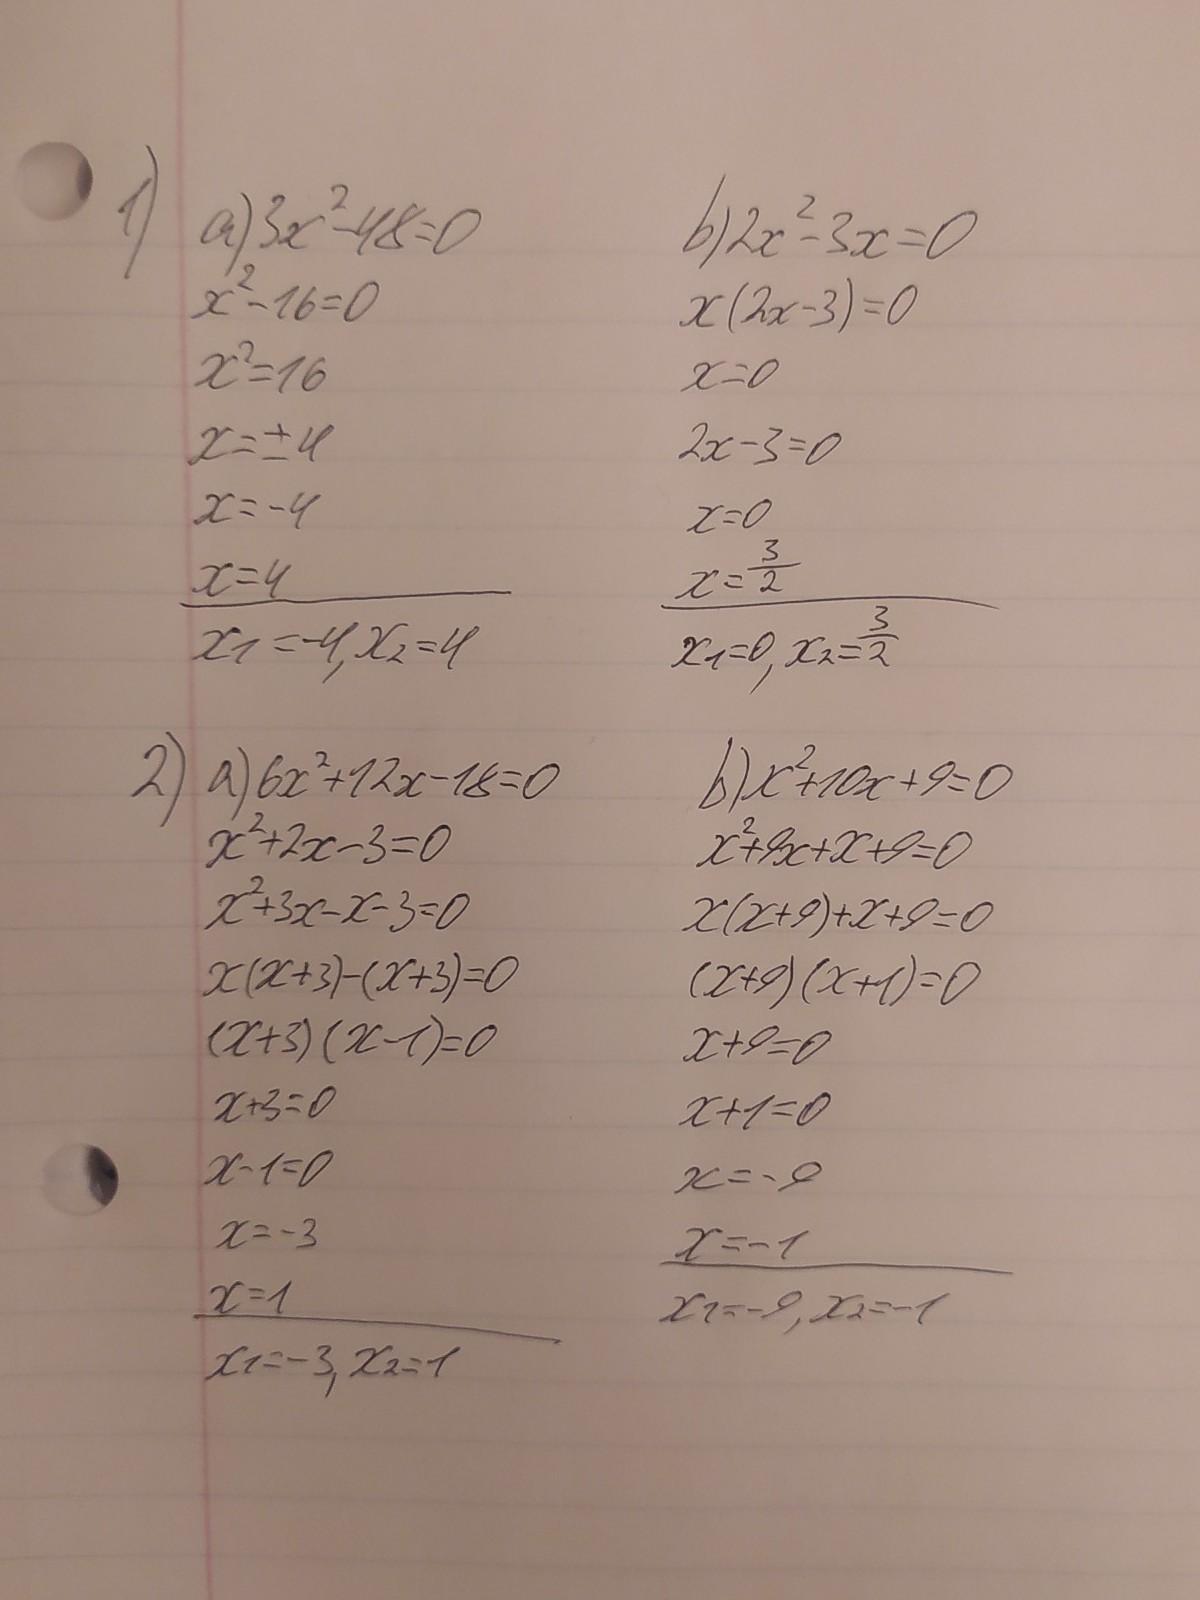 1) a) 3x²-48=0
x²-16=0
x²=16
x=±4
x=-4
x=4
x1=-4, x2=4
b) 2x²-3x=0
x(2x-3)=0
x=0
2x-3=0
x=0
x=3/2
x1=0, x2=3/2
2) a) 6x²+12x-18=0
x²+2x-3=0
x²+3x-x-3=0
x(x+3)-(x+3)=0
(x+3)(x-1)=0
x+3=0
x-1=0
x=-3
x=1
x1=-3, x2=1
b) x²+10x+9=0
x²+9x+x+9=0
x(x+9)+x+9=0
(x+9)(x+1)=0
x+9=0
x+1=0
x=-9
x=-1
x1=-9, x2=-1